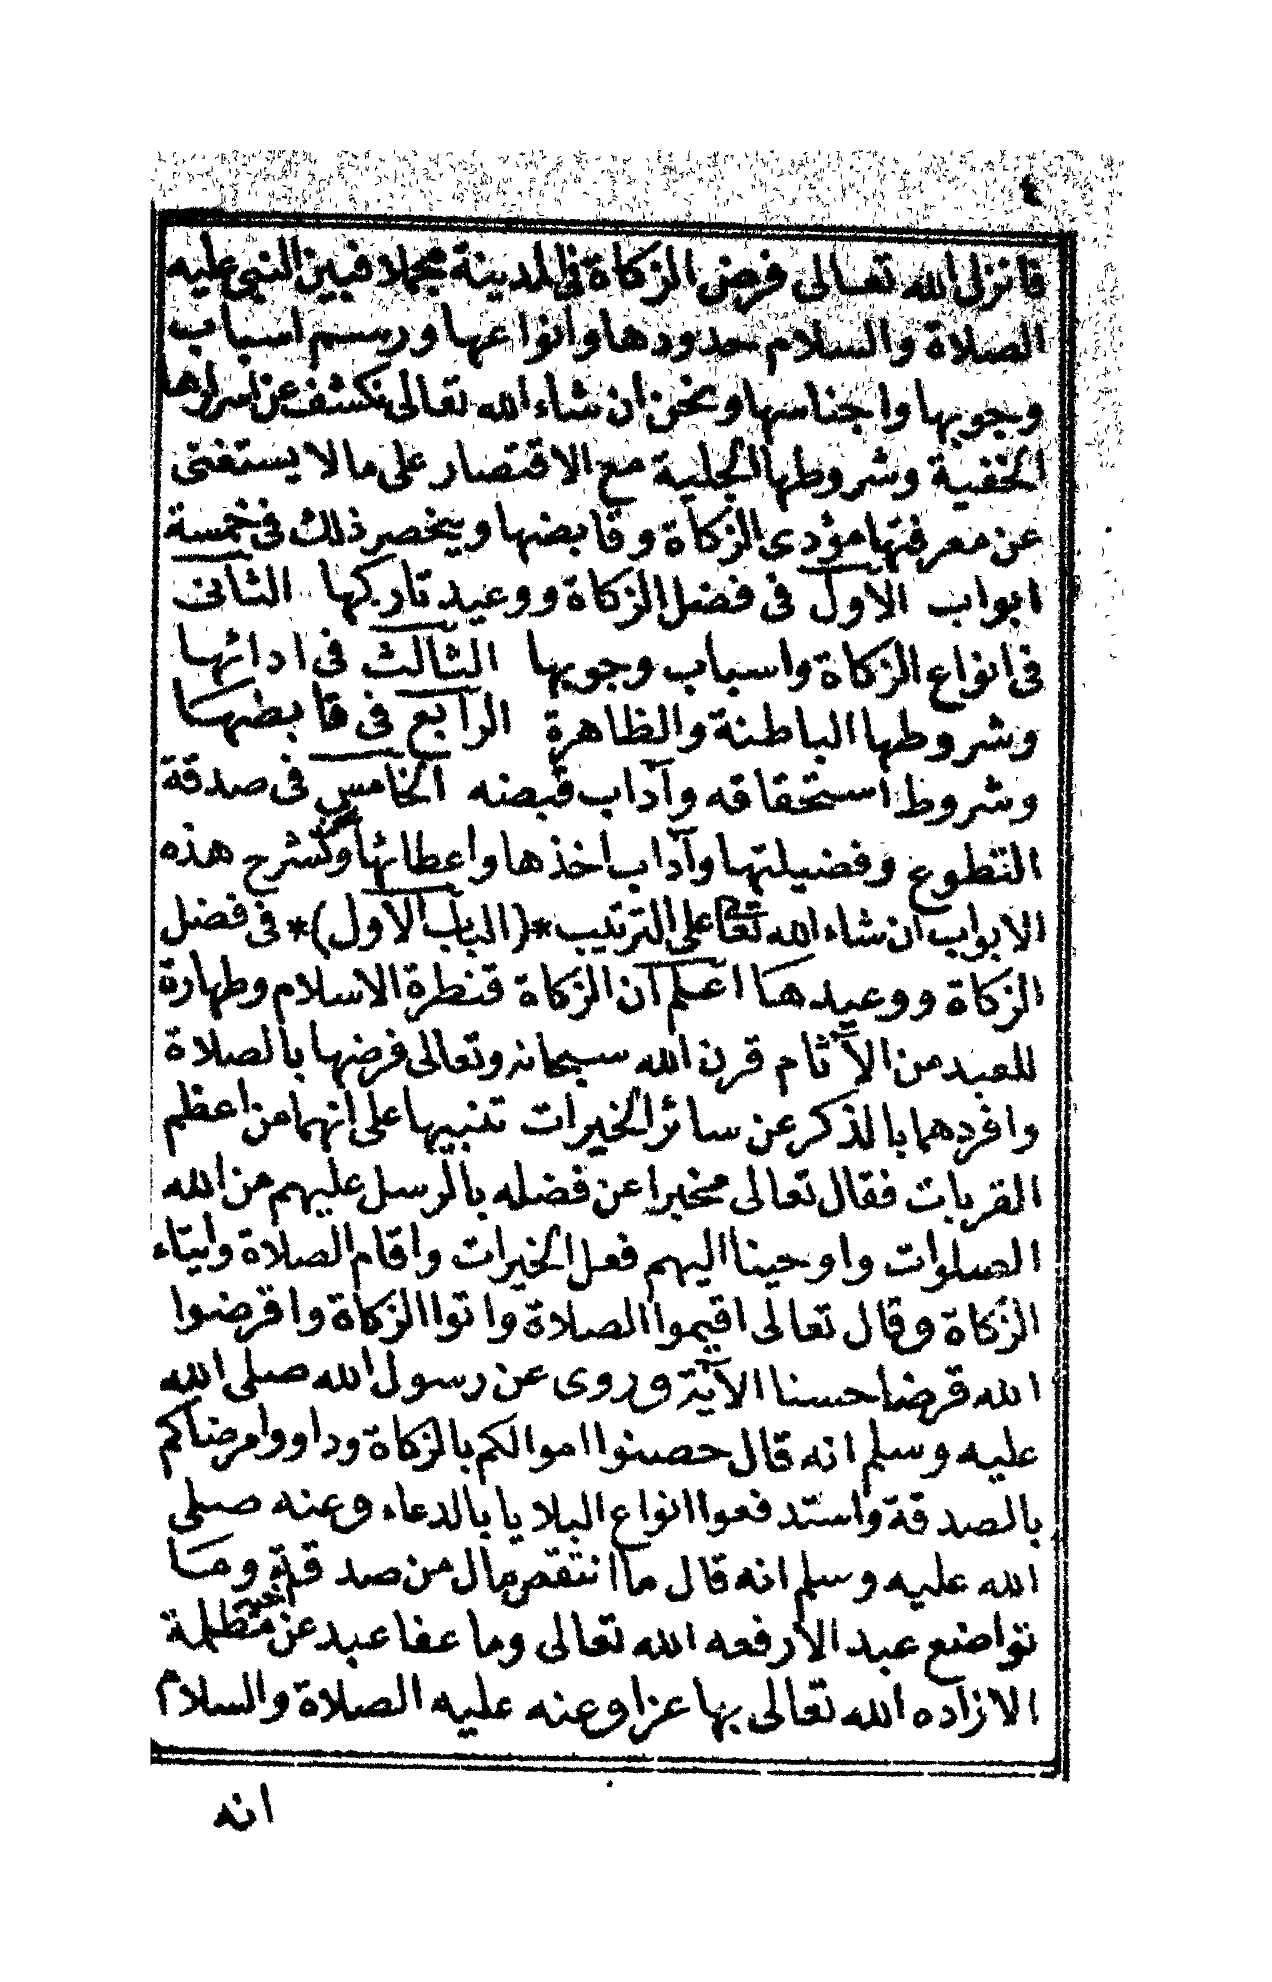 ٤
فانزل الله تعالى فرض الزكاة فى المدينة مجملا فبين النبى عليه
الصلاة والسلام حدودها وانواعها ورسم اسباب
وجوبها واجناسها ونحن ان شاء الله تعالى نكشف عن اسرارها
الخفية وشروطها الجلية مع الاقتصار على ما لا يستغنى
عن معرفتها مؤدى الزكاة وقابضها وينحصر ذلك فى خمسة
ابواب الاول فى فضل الزكاة ووعيد تاركها الثانى
فى انواع الزكاة واسباب وجوبها الثالث فى ادائها
وشروطها الباطنة والظاهرة الرابع فى قابضها
وشروط استحقاقه وآداب قبضه الخامس فى صدقة
التطوع وفضيلتها وآداب اخذها واعطائها وكنشرح هذه
الابواب ان شاء الله تعا على الترتيب *(الباب الاول)* فى فضل
الزكاة ووعيدها اعلم ان الزكاة قنطرة الاسلام وطهارة
للعبد من الآثام قرن الله سبحانه وتعالى فرضها بالصلاة
وافردهما بالذكر عن سائر الخيرات تنبيها على انهما من اعظم
القربات فقال تعالى مخبرا عن فضله بالرسل عليهم من الله
الصلوات واوحينا اليهم فعل الخيرات واقام الصلاة وايتاء
الزكاة وقال تعالى اقيموا الصلاة واتوا الزكاة واقرضوا
الله قرضا حسنا الآية وروى عن رسول الله صلى الله
عليه وسلم انه قال حصنوا اموالكم بالزكاة وداووا مرضاكم
بالصدقة واستدفعوا انواع البلايا بالدعاء وعنه صلى
الله عليه وسلم انه قال ما انتقص مال من صدقة وما
تواضع عبد الا رفعه الله تعالى وما عفا عبد عن مظلمة
الا زاده الله تعالى بها عزا وعنه عليه الصلاة والسلام
انه